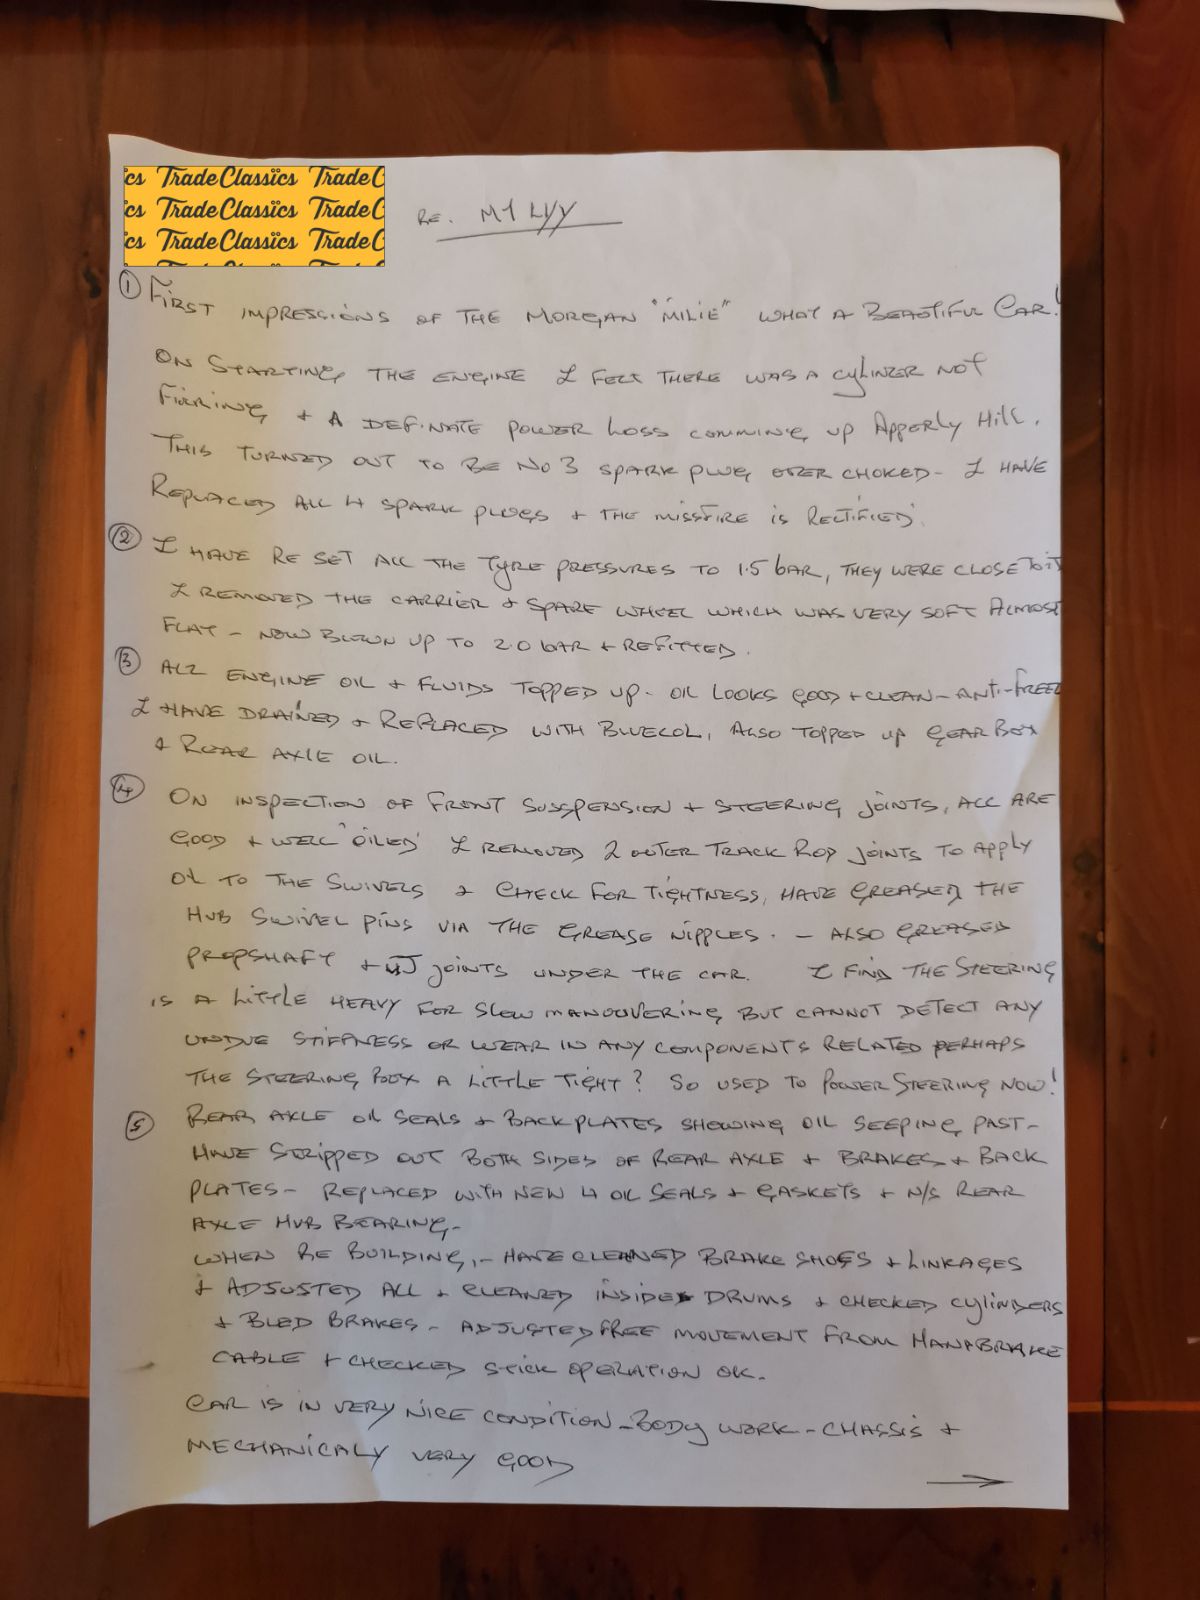 cs TradeClassics TradeC
cs TradeClassics TradeC
cs TradeClassics TradeC
RE. MY LVY
① FIRST IMPRESSIONS OF THE MORGAN "MILIE" WHAT A BEAUTIFUL CAR!
ON STARTING THE ENGINE I FELT THERE WAS A CYLINDER NOT
FIRRING + A DEFINATE POWER LOSS COMMING UP APPERLY HILL.
THIS TURNED OUT TO BE NO 3 SPARK PLUG OVER CHOKED - I HAVE
REPLACED ALL 4 SPARK PLUGS + THE MISSFIRE IS RECTIFIED.
② I HAVE RE SET ALL THE TYRE PRESSURES TO 1.5 BAR, THEY WERE CLOSE TO IT
I REMOVED THE CARRIER + SPARE WHEEL WHICH WAS VERY SOFT ALMOST
FLAT - NOW BLOWN UP TO 2.0 BAR + REFITTED.
③ ALL ENGINE OIL + FLUIDS TOPPED UP - OIL LOOKS GOOD + CLEAN - ANTI-FREEZ
I HAVE DRAINED + REPLACED WITH BLUECOL, ALSO TOPPED UP GEAR BOX
+ REAR AXLE OIL.
④ ON INSPECTION OF FRONT SUSPENSION + STEERING JOINTS, ALL ARE
GOOD + WELL "OILED" I REMOVED 2 OUTER TRACK ROD JOINTS TO APPLY
OIL TO THE SWIVELS + CHECK FOR TIGHTNESS, HAVE GREASED THE
HUB SWIVEL PINS VIA THE GREASE NIPPLES. - ALSO GREASED
PROPSHAFT + UJ JOINTS UNDER THE CAR. I FIND THE STEERING
IS A LITTLE HEAVY FOR SLOW MANOUVERING BUT CANNOT DETECT ANY
UNDUE STIFFNESS OR WEAR IN ANY COMPONENTS RELATED PERHAPS
THE STEERING BOX A LITTLE TIGHT? SO USED TO POWER STEERING NOW!
⑤ REAR AXLE OIL SEALS + BACK PLATES SHOWING OIL SEEPING PAST -
HAVE STRIPPED OUT BOTH SIDES OF REAR AXLE + BRAKES + BACK
PLATES - REPLACED WITH NEW 4 OIL SEALS + GASKETS + N/S REAR
AXLE HUB BEARING -
WHEN RE BUILDING, - HAVE CLEANED BRAKE SHOES + LINKAGES
+ ADJUSTED ALL + CLEANED INSIDE DRUMS + CHECKED CYLINDERS
+ BLED BRAKES - ADJUSTED FREE MOVEMENT FROM HANDBRAKE
CABLE + CHECKED STICK OPERATION OK.
CAR IS IN VERY NICE CONDITION - BODY WORK - CHASSIS +
MECHANICALY VERY GOOD